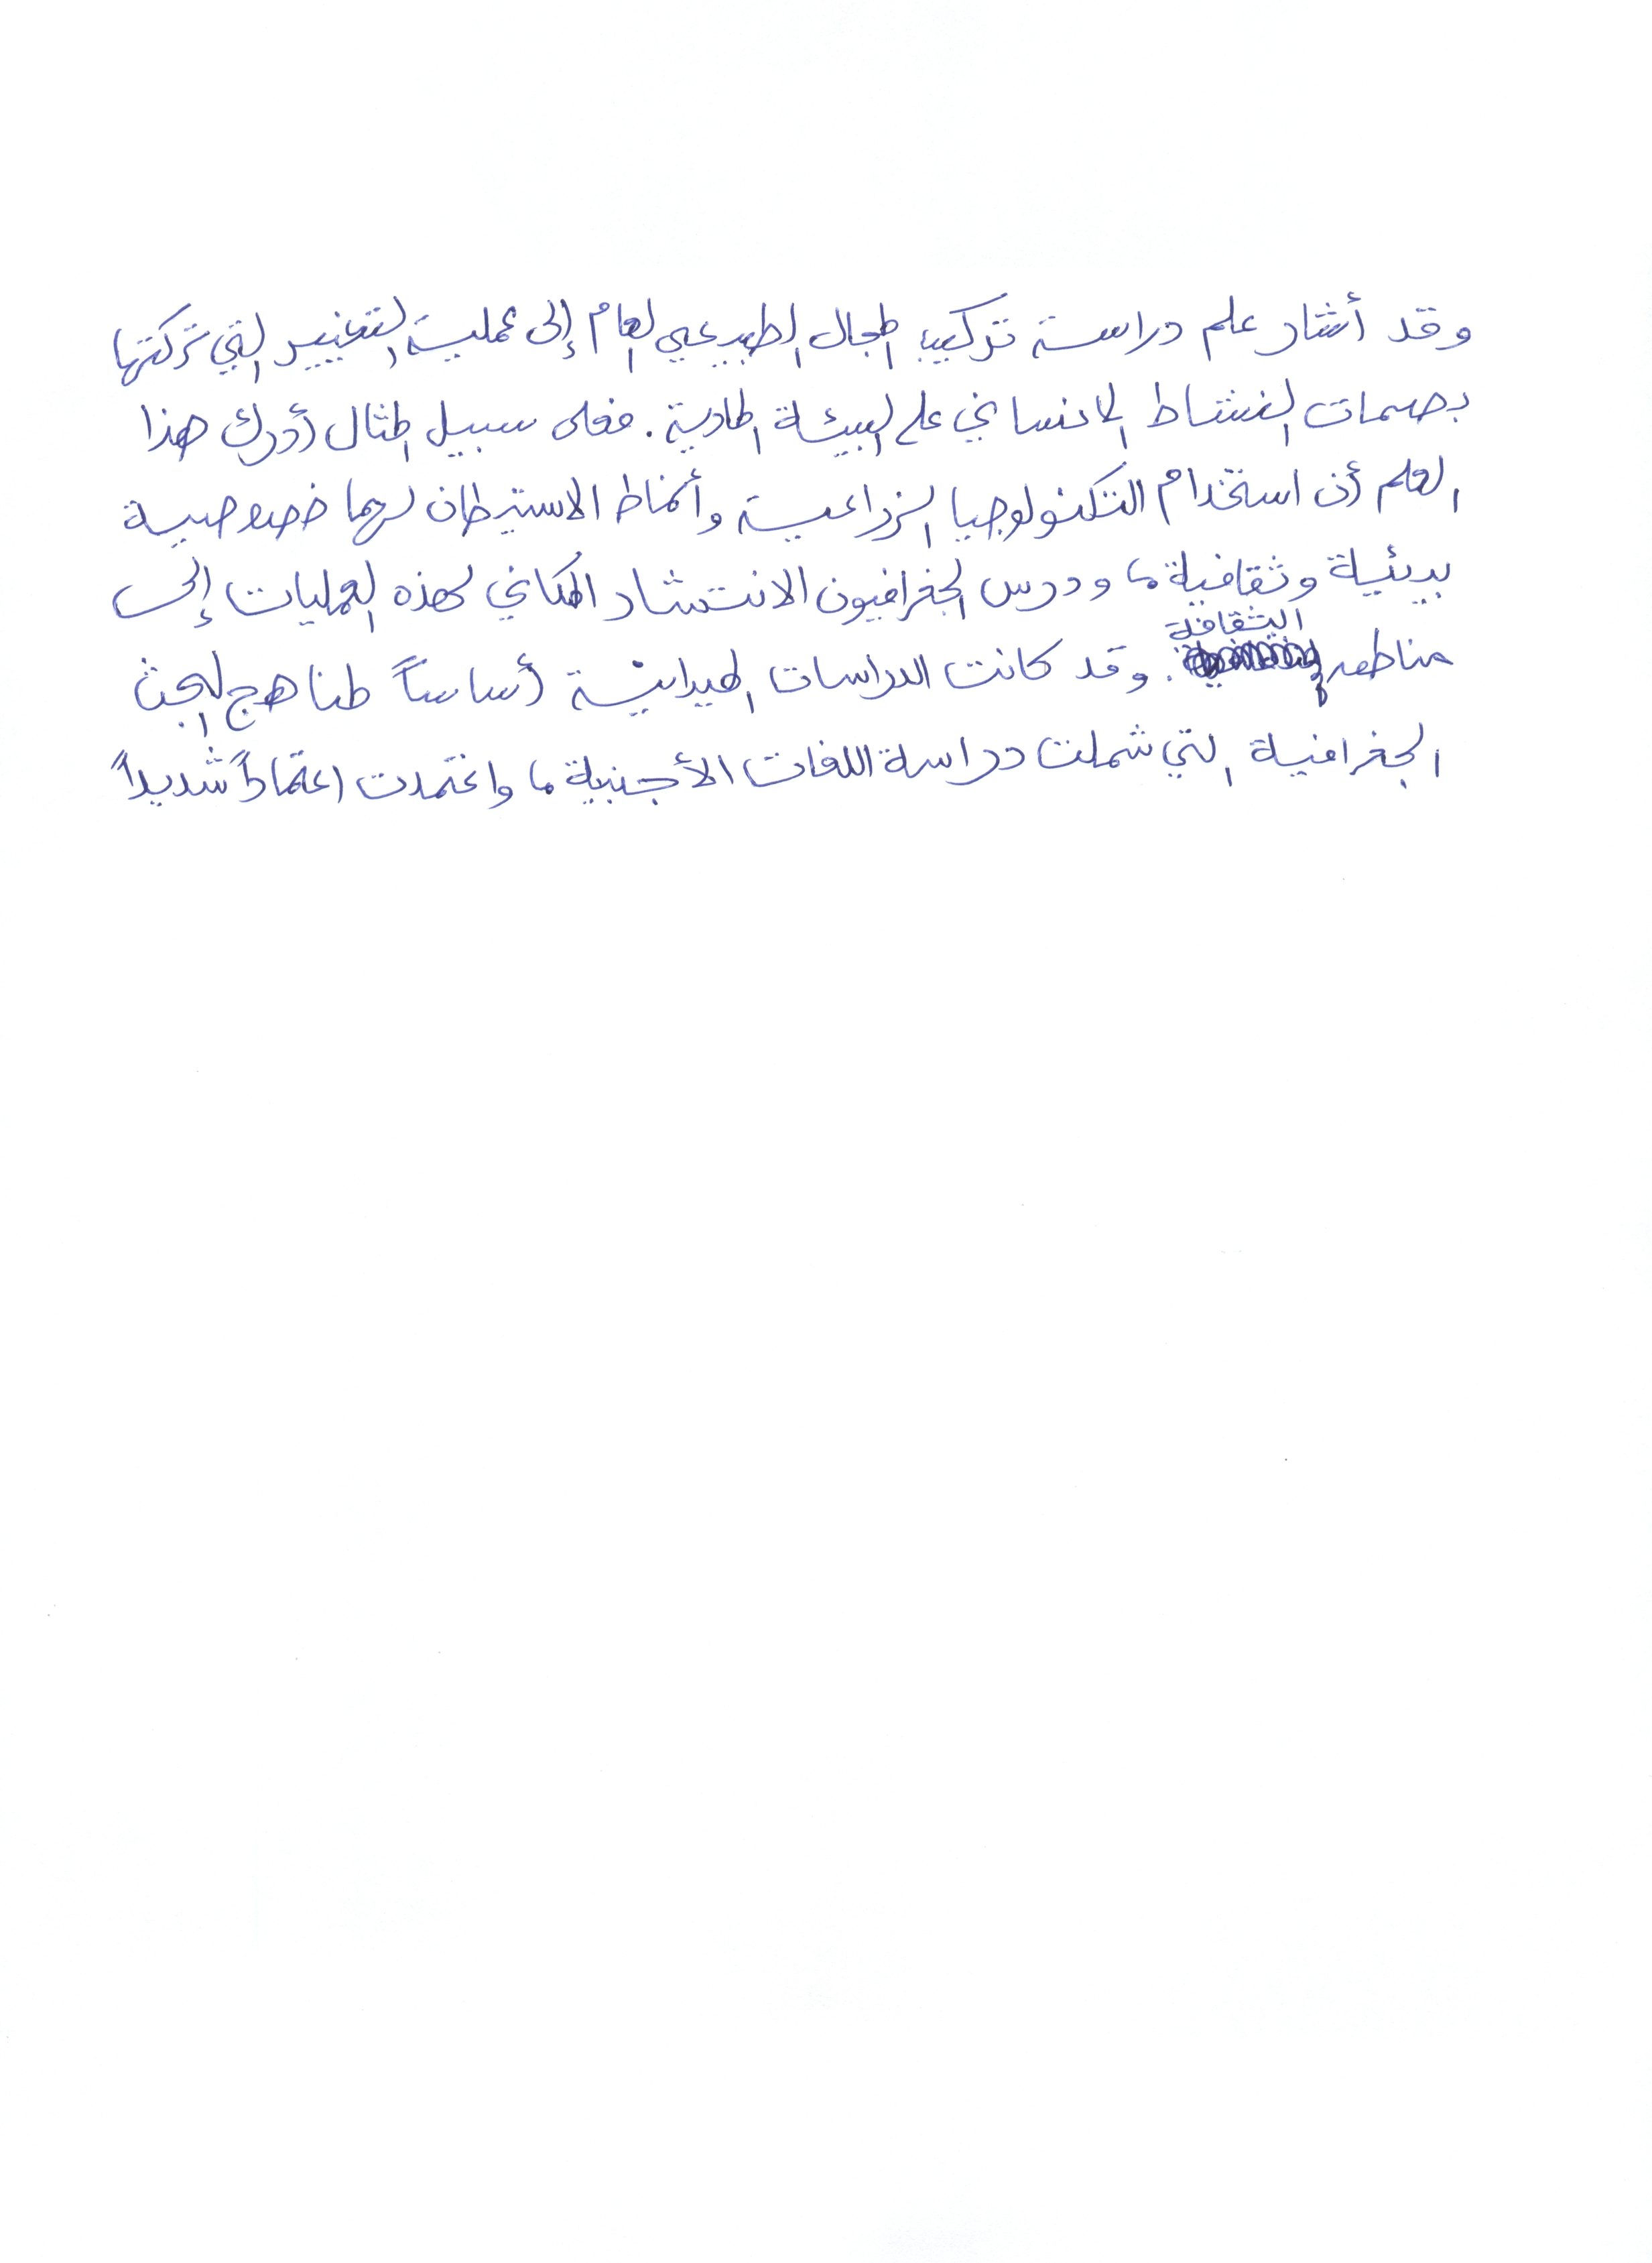 وقد أشار علم دراسة تركيب المجال الطبيعي العام إلى عملية التغيير التي تركتها
بصمات النشاط الانساني على البيئة المادية. فعلى سبيل المثال أدرك هذا
العلم أن استخدام التكنولوجيا الزراعية وأنماط الاستيطان لهما خصوصية
بيئية وثقافية، ودرس الجغرافيون الانتشار المكاني لهذه العمليات إلى
مناطق الثقافة. وقد كانت الدراسات الميدانية أساساً لمناهج البحث
الجغرافية التي شملت دراسة اللغات الأجنبية، واعتمدت اعتماداً شديداً